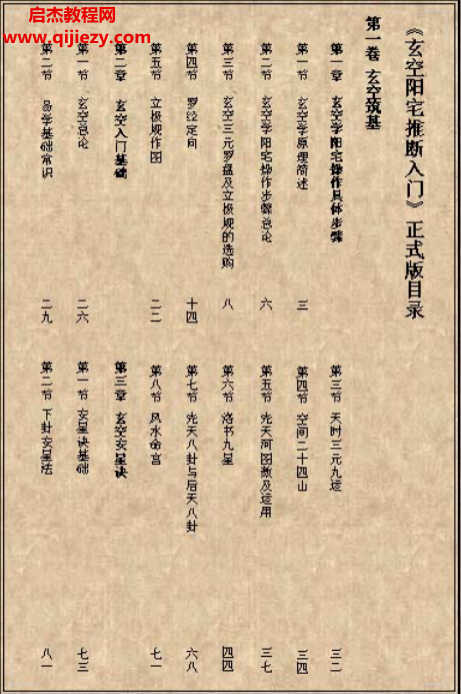 启杰教程网
www.qijiezy.com
《玄空阳宅推断入门》正式版目录
第一卷 玄空筑基
第一章 玄空学阳宅操作具体步骤
第一节 玄空学原理简述 三
第二节 玄空学阳宅操作步骤总论 六
第三节 玄空三元罗盘及立极规的选购 八
第四节 罗经定向 十四
第五节 立极规作图 二二
第二章 玄空入门基础
第一节 玄空总论 二六
第二节 易学基础常识 二九
第三节 天时三元九运 三二
第四节 空间二十四山 三四
第五节 先天河图数及运用 三七
第六节 洛书九星 四四
第七节 先天八卦与后天八卦 六八
第八节 风水命宫 七一
第三章 玄空安星诀
第一节 安星诀基础 七三
第二节 下卦安星法 八一